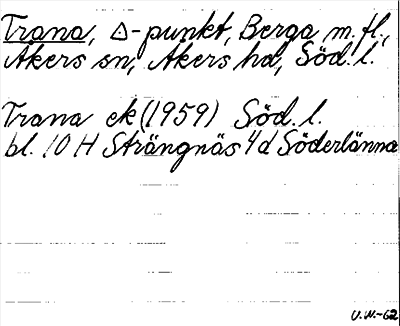 Trana, △-punkt, Berga m.fl.,
Åkers sn, Åkers hd, Söd.l.
Trana ek (1959) Söd.l.
bl. 10 H Strängnäs 4d Söderlänna
U.W.-62